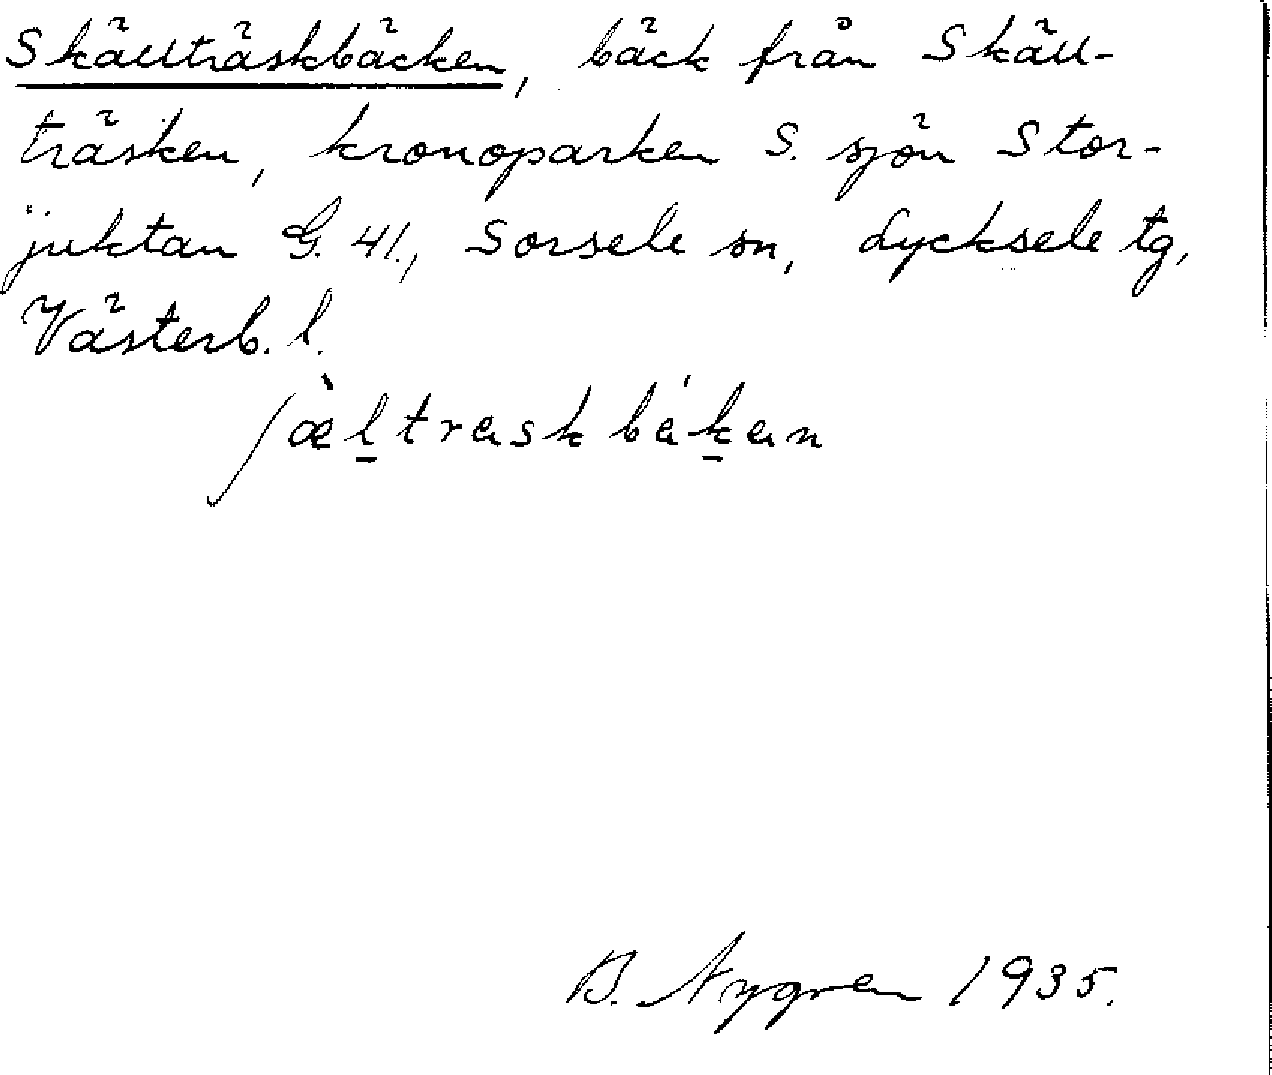 Skällträskbäcken, bäck från Skäll-
träsken, kronoparken S. sjön Stor-
juktan G. 41., Sorsele sn, Lycksele tg,
Västerb. l.
ʃæ̀l̲traskbák̲an
B. Nygren 1935.